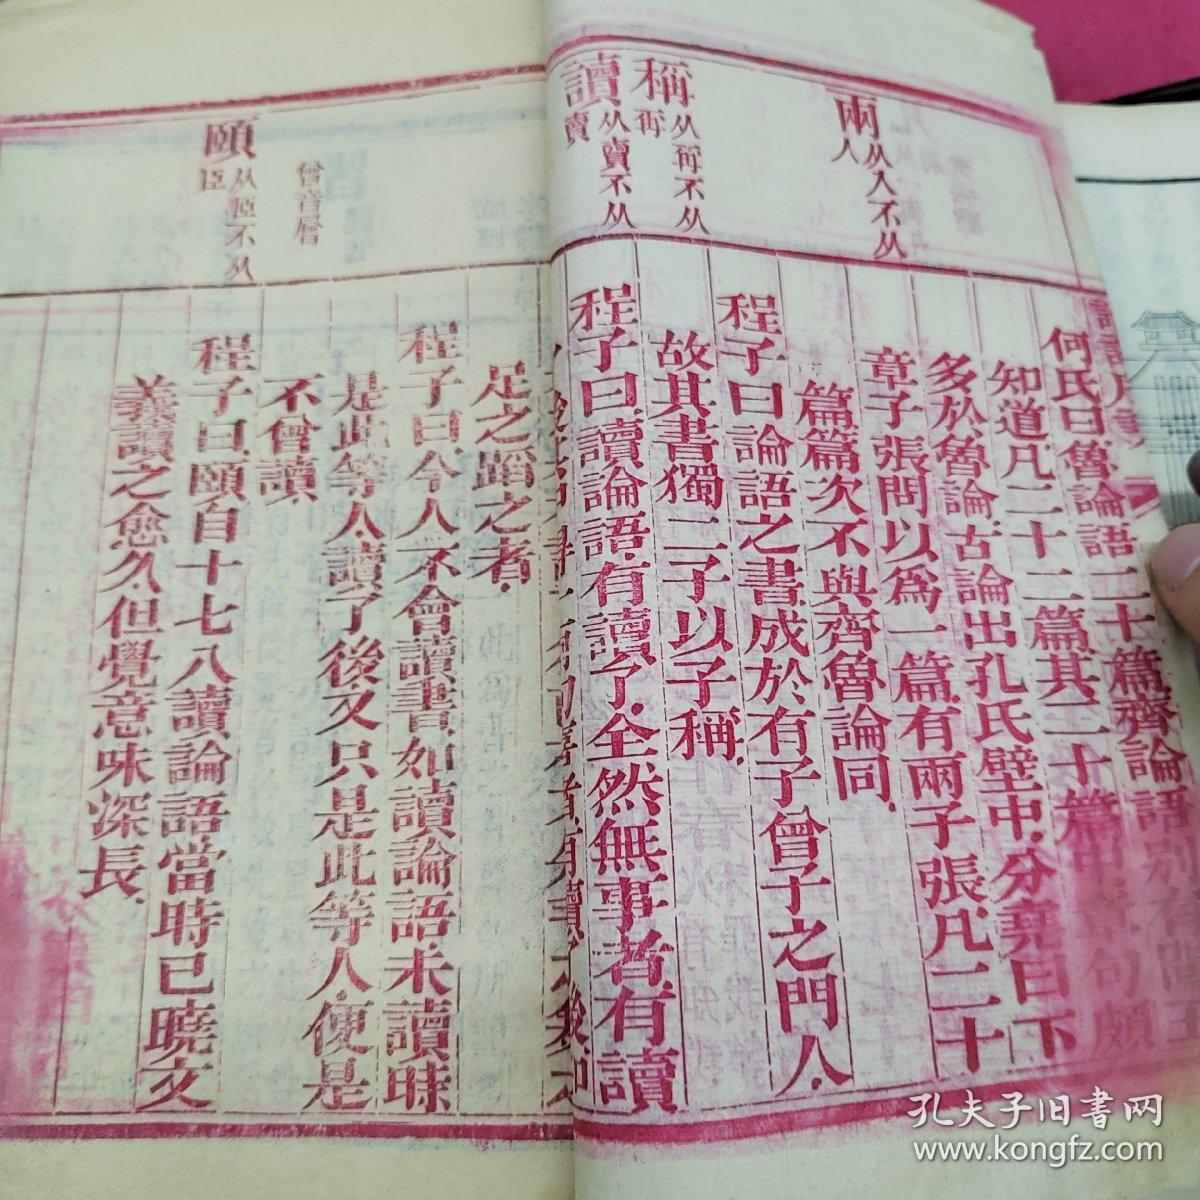 兩 从入不从人
稱 从再不从再
讀 从賣不从賣
何氏曰魯論語二十篇齊論語別有問王
知道凡二十二篇其二十篇中章句頗
多於魯論古論出孔氏壁中分堯曰下
章子張問以爲一篇有兩子張凡二十
一篇篇次不與齊魯論同
程子曰論語之書成於有子曾子之門人
故其書獨二子以子稱
程子曰讀論語有讀了全然無事者有讀
足之蹈之者
曾音層
程子曰今人不會讀書如讀論語未讀時
是此等人讀了後又只是此等人便是
不曾讀
頤 从𦣞不从臣
程子曰頤自十七八讀論語當時已曉文
義讀之愈久但覺意味深長
孔夫子旧書网
www.kongfz.com